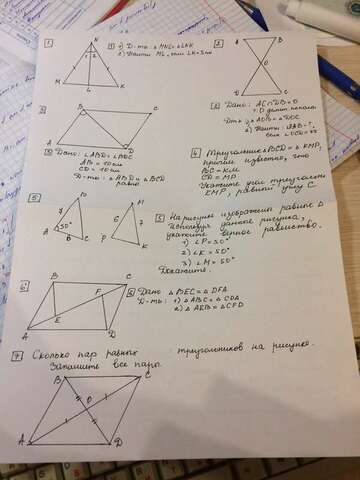 1.
N
1 2
M
L
K
1) Д-ть: △MNL = △LNK
2) Найти ML, если LK = 5 см
2.
A
B
O
D
C
2. Дано: AC∩DB = O
т. O делит попала
Д-ть 1) △AOB = △DOC
2) Найти: AB - ?,
если ∠CD =
B
C
A
D
3 Дано: ∠ABD = ∠BDC
AB = 10 см
CD = 10 см
Д-ть: △ABD и △BCD
равны
4 Треугольник △BCD = △KMP,
причем известно, что
BC = KM
CD = MP
Укажите угол треугольн
KMP, равный углу C
5.
D
7
50°
A
6
C
M
6
7
P
K
5 На рисунке изображены равные △
Используя данные рисунка,
укажите верное равенство.
1) ∠P = 50°
2) ∠K = 50°
3) ∠M = 50°
Докажите.
6.
B
C
F
E
A
D
6 Дано △BEC = △DFA
Д-ть: 1) △ABC = △CDA
2) △AEB = △CFD
7 Сколько пар равных треугольников на рисунке.
Запишите все пары.
B
C
O
A
D